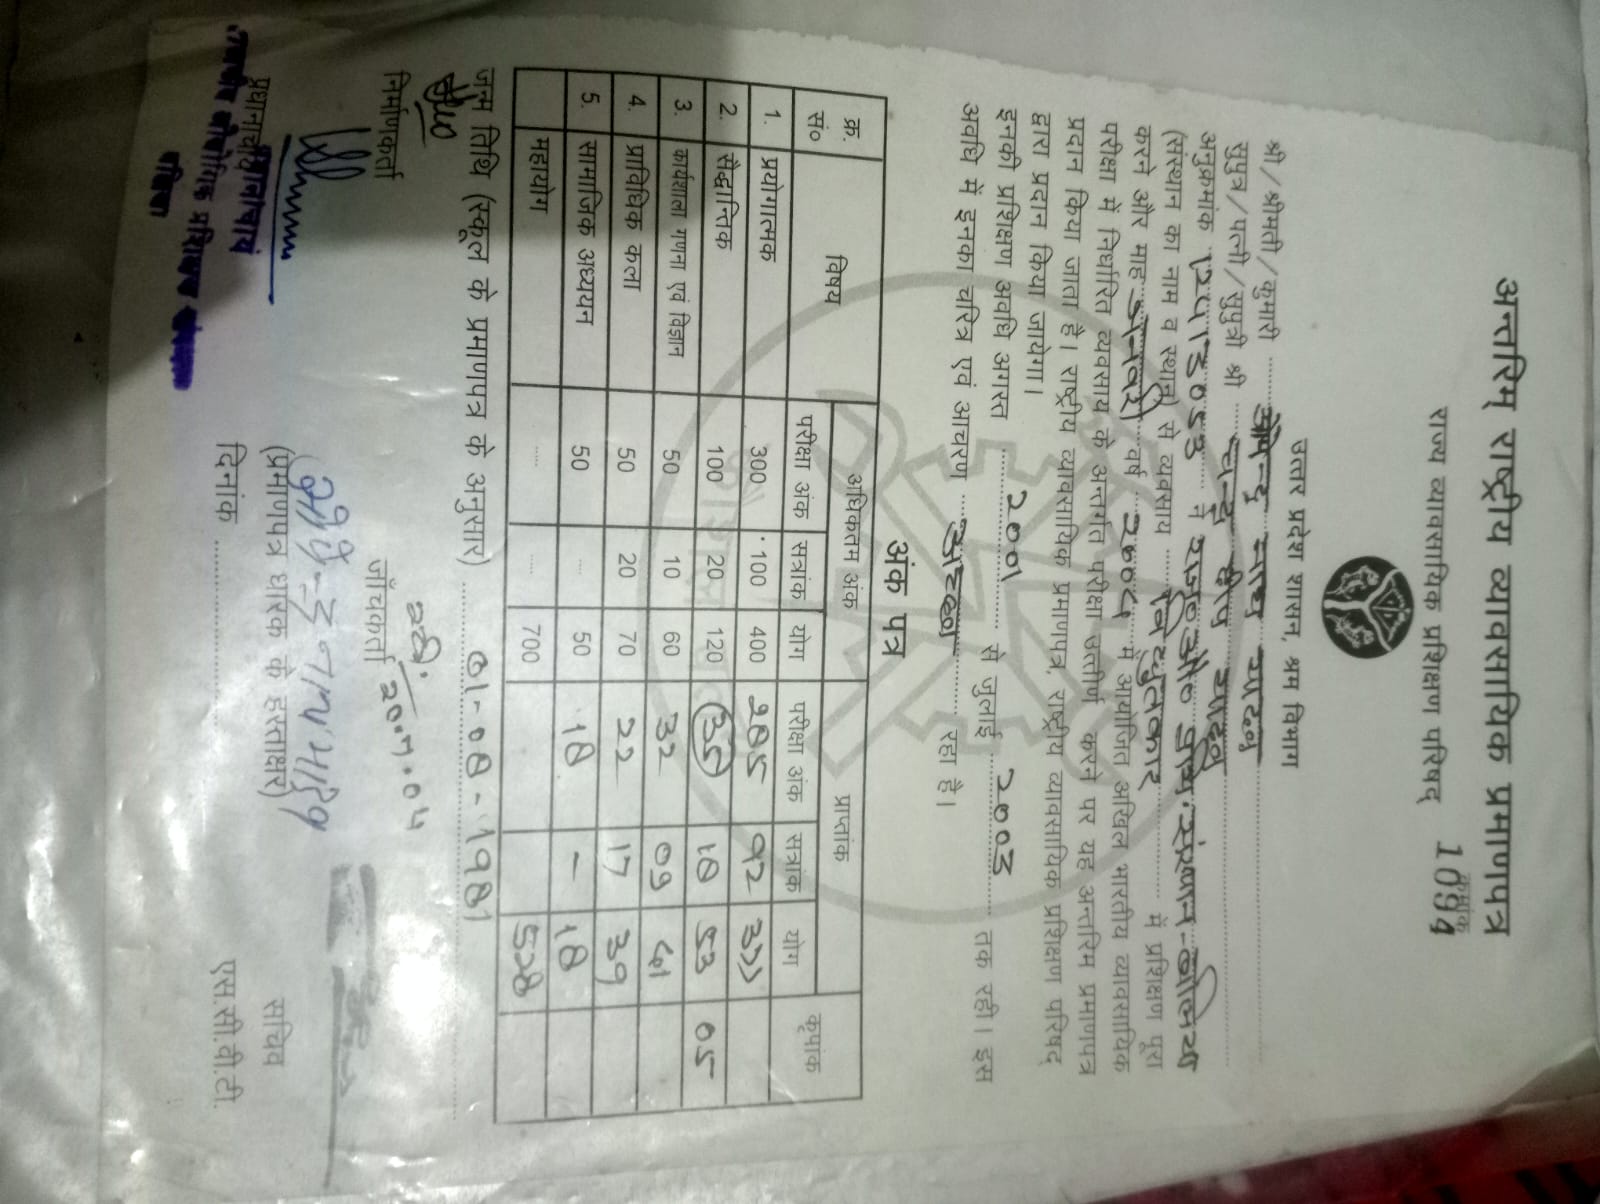 अन्तरिम् राष्ट्रीय व्यावसायिक प्रमाणपत्र
क्रमांक
1094
राज्य व्यावसायिक प्रशिक्षण परिषद्
उत्तर प्रदेश शासन, श्रम विभाग
श्री/श्रीमती/कुमारी ओपेन्द्र नाथ यादव
सुपुत्र/पत्नी/सुपुत्री श्री चन्द्र दीप यादव
अनुक्रमांक ने राज० औ० प्रशि. संस्थान-बलिया
(संस्थान का नाम व स्थान) से व्यवसाय विद्युतकार में प्रशिक्षण पूरा
करने और माह जनवरी वर्ष 2004 में आयोजित अखिल भारतीय व्यावसायिक
परीक्षा में निर्धारित व्यवसाय के अन्तर्गत परीक्षा उत्तीर्ण करने पर यह अन्तरिम प्रमाणपत्र
प्रदान किया जाता है। राष्ट्रीय व्यावसायिक प्रमाणपत्र, राष्ट्रीय व्यावसायिक प्रशिक्षण परिषद्
द्वारा प्रदान किया जायेगा।
इनकी प्रशिक्षण अवधि अगस्त 2001 से जुलाई 2003 तक रही। इस
अवधि में इनका चरित्र एवं आचरण अच्छा रहा है।
अंक पत्र
क्र. सं० विषय अधिकतम अंक प्राप्तांक कृपांक
परीक्षा अंक सत्रांक योग परीक्षा अंक सत्रांक योग
1. प्रयोगात्मक 300 100 400 285 92 377
2. सैद्धान्तिक 100 20 120 35 18 53 05
3. कार्यशाला गणना एवं विज्ञान 50 10 60 32 09 41
4. प्राविधिक कला 50 20 70 22 17 39
5. सामाजिक अध्ययन 50 .... 50 18 - 18
महायोग ..... ..... 700 528
जन्म तिथि (स्कूल के प्रमाणपत्र के अनुसार) 01-08-1981
निर्माणकर्ता
20.7.04
जाँचकर्ता
ओपेन्द्र नाथ यादव
(प्रमाणपत्र धारक के हस्ताक्षर)
सचिव
प्रधानाचार्य
प्रधानाचार्य
दिनांक
एस.सी.वी.टी.
राजकीय औद्योगिक प्रशिक्षण संस्थान
बलिया